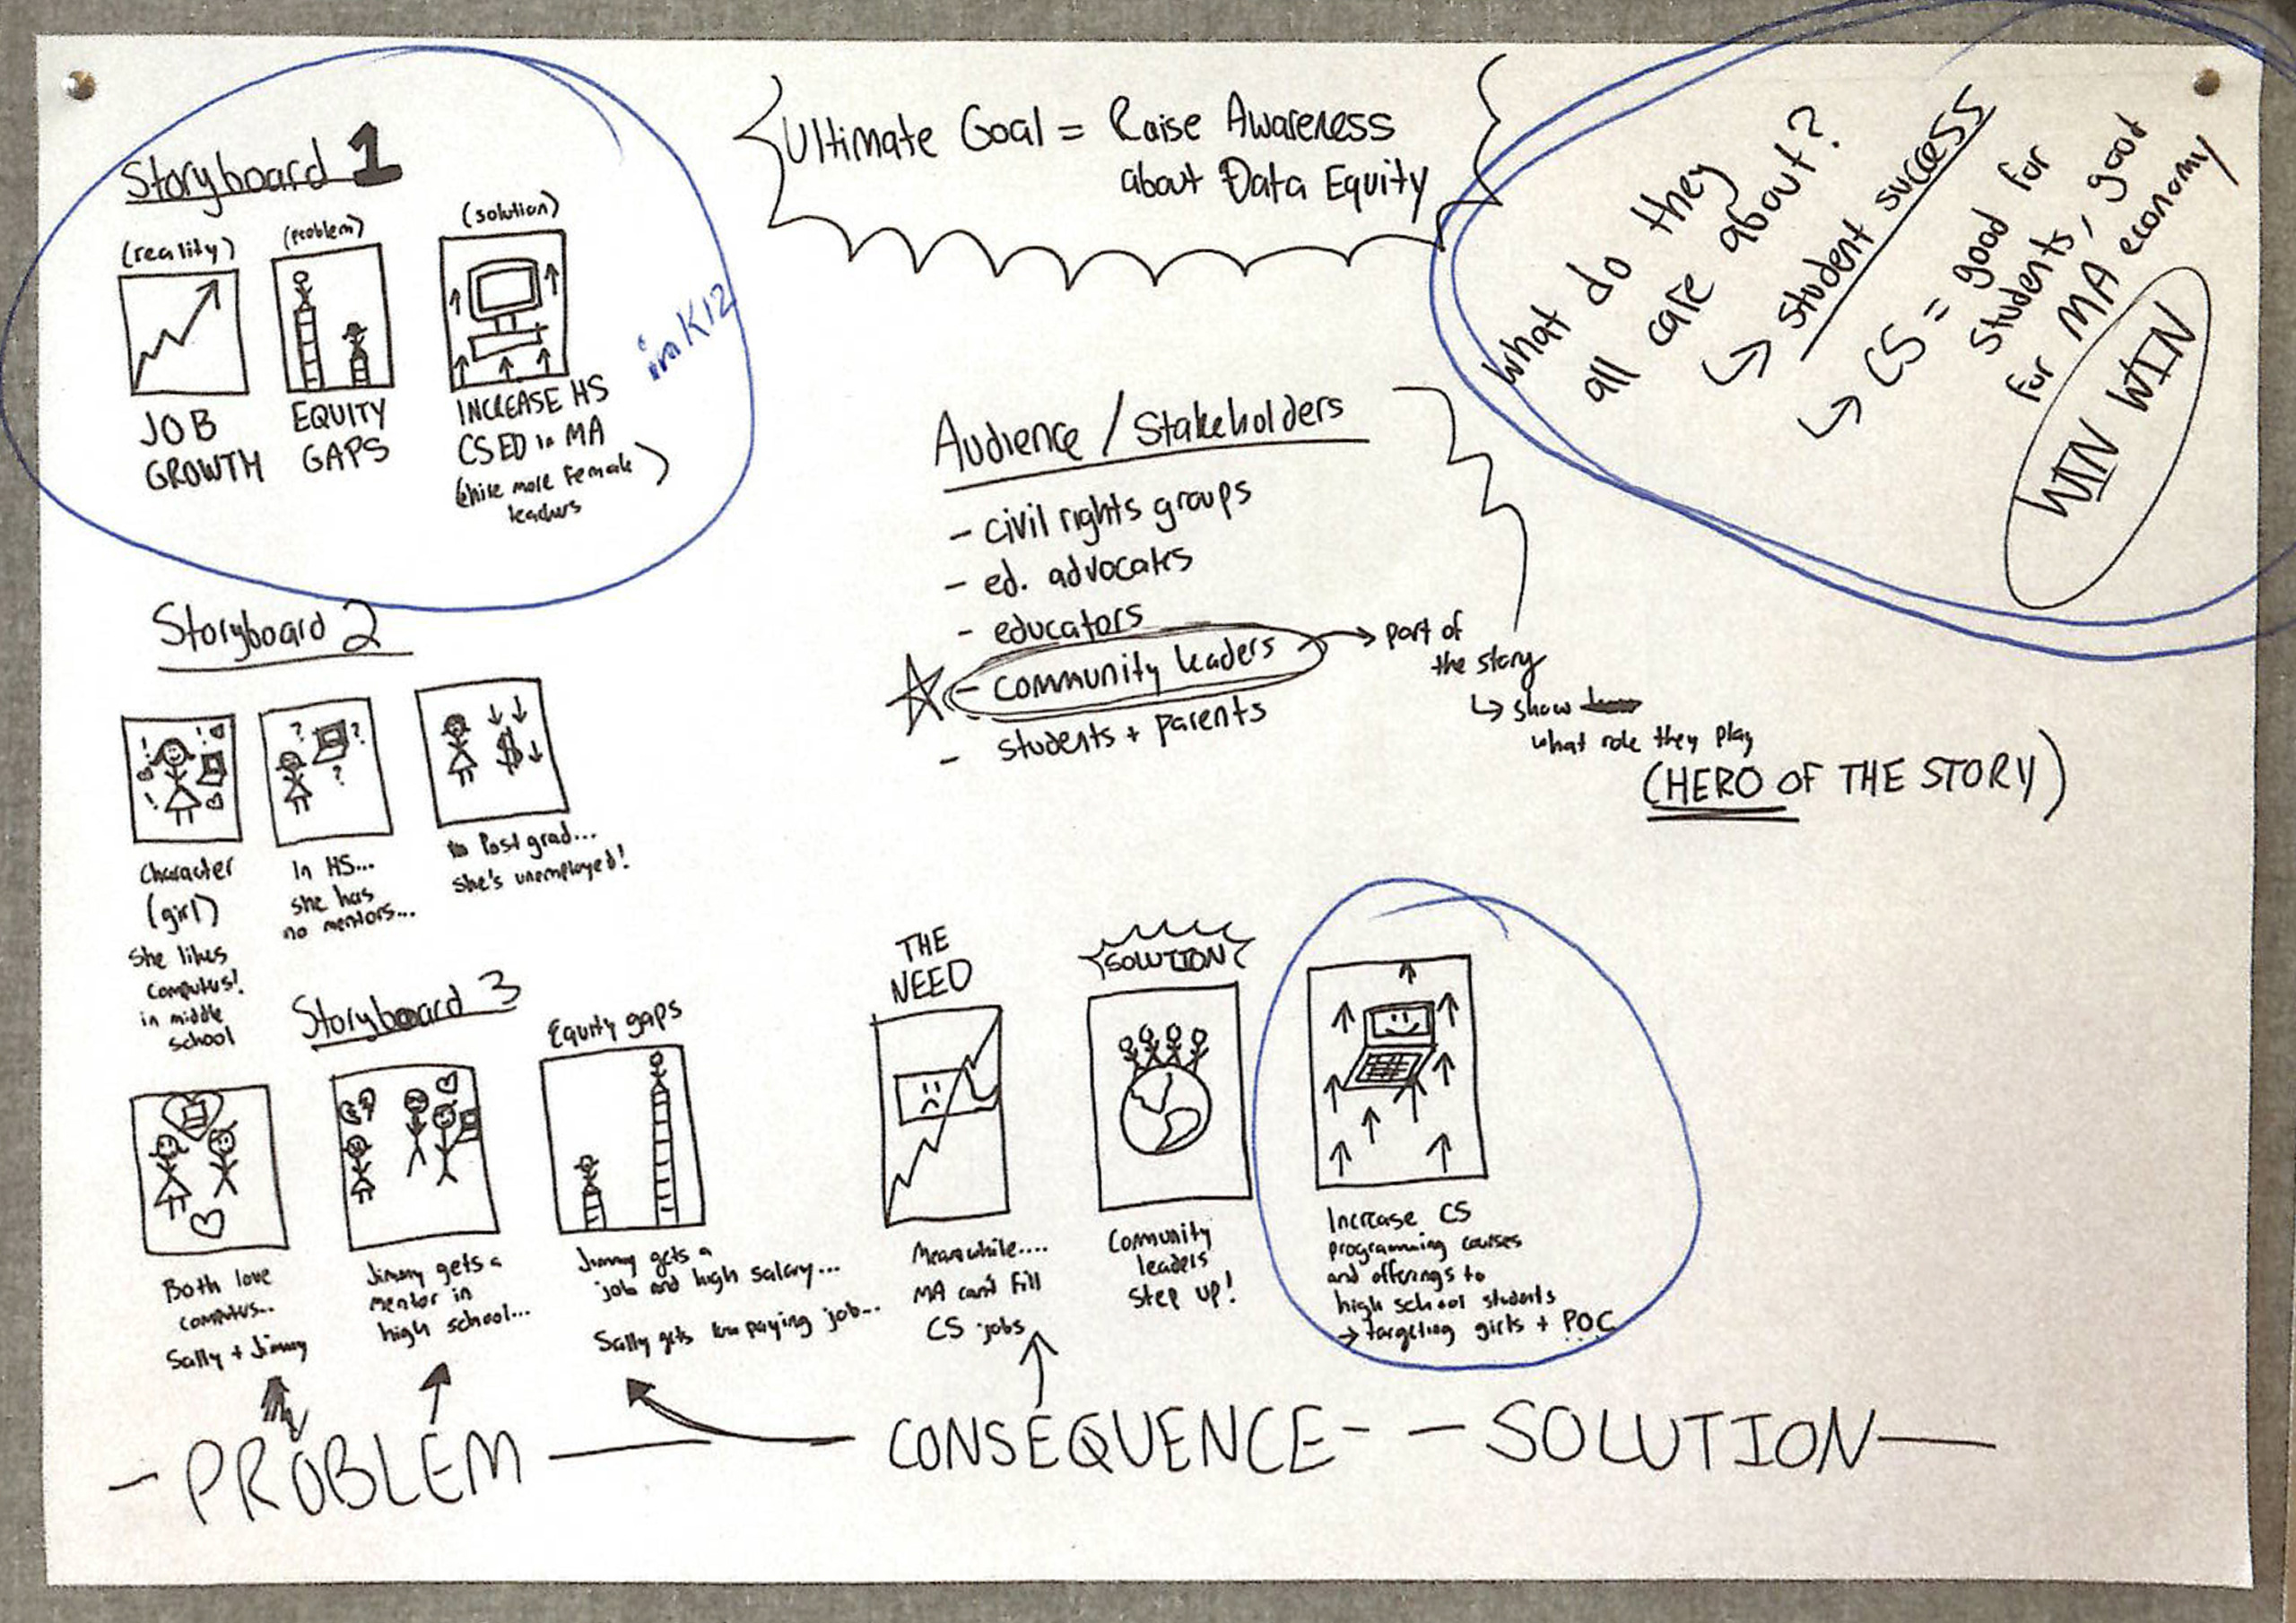 Ultimate Goal = Raise Awareness
about Data Equity
Storyboard 1
(reality)
(problem)
(solution)
JOB
GROWTH
EQUITY
GAPS
INCREASE HS
CS ED in MA
(hire more female
teachers)
in K12
What do they
all care about?
↳ student success
↳ CS = good for
students, good
for MA economy
WIN WIN
Audience / Stakeholders
- civil rights groups
- ed. advocates
- educators
- community leaders
- students + parents
→ part of
the story
↳ show
what role they play
(HERO OF THE STORY)
Storyboard 2
! ! !
? ? ?
$
Character
(girl)
She likes
computers!
in middle
school
In HS...
she has
no mentors...
Post grad...
she's unemployed!
Storyboard 3
Equity gaps
Both love
computers...
Sally + Jimmy
Jimmy gets a
mentor in
high school...
Jimmy gets a
job and high salary...
Sally gets low paying job...
THE
NEED
Meanwhile....
MA can't fill
CS jobs
SOLUTION
Community
leaders
step up!
Increase CS
programming courses
and offerings to
high school students
→ targeting girls + POC
- PROBLEM — CONSEQUENCE - - SOLUTION —